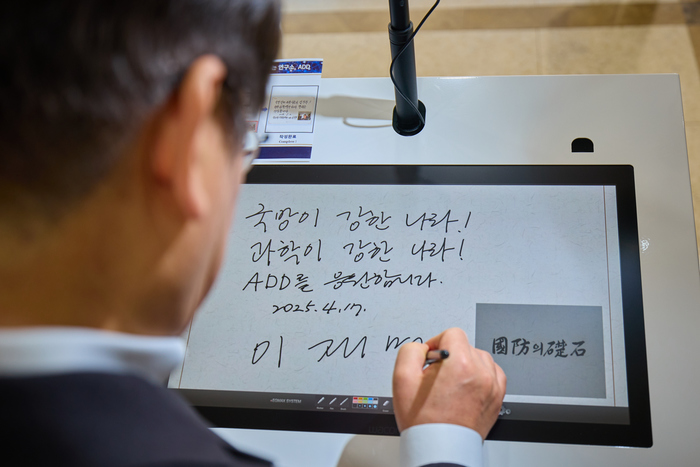 연구소, ADD
작성완료
Complete
국방이 강한 나라!
과학이 강한 나라!
ADD를 응원합니다.
2025.4.17.
이 재
國防의 礎石